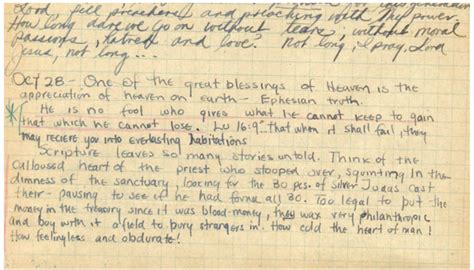 Lord fill preachers and preaching with Thy power.
How long dare we go on without tears, without moral
passions, hatred and love. Not long, I pray, Lord
Jesus, not long...
Oct 28 - One of the great blessings of Heaven is the
appreciation of heaven on earth - Ephesian truth.
He is no fool who gives what he cannot keep to gain
that which he cannot lose. Lu 16:9 "that when it shall fail, they
may reciere you into everlasting habitations
Scripture leaves so many stories untold. Think of the
calloused heart of the priest who stooped over, squinting in the
dimness of the sanctuary, looking for the 30 pcs. of silver Judas cast
their - pausing to see if he had found all 30. Too legal to put the
money in the treasury since it was blood-money, they wax very philanthropic
and buy with it a field to bury strangers in. How cold the heart of man!
How feelingless and obdurate!